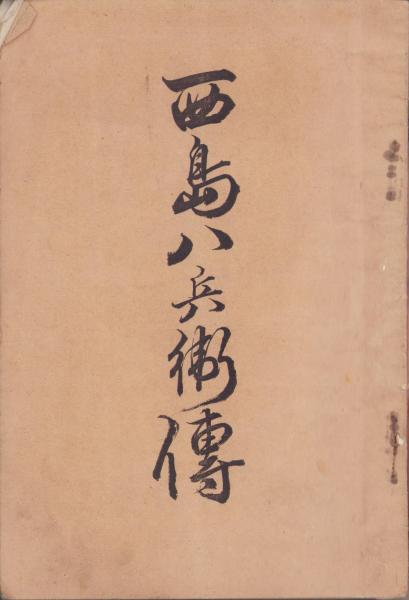 西島八兵衛傳